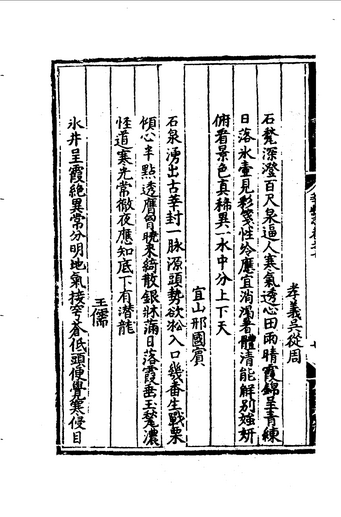 孝義吳從周
石甃深澄百尺泉逼人寒氣透心田雨晴霞錦呈青練
日落氷壺見彩箋性冷應宜消渴暑體清能解别媸妍
俯看景色真稀異一水中分上下天
宜山邢國賓
石泉湧出古莘封一脉源頭勢欲洶入口幾番生戰栗
傾心半點透膺胷曉來綺散銀牀滿日落霞垂玉甃濃
怪道寒光常徹夜應知底下有潛龍
王儒
氷井呈霞絶異常分明地氣接穹蒼低頭便覺寒侵目